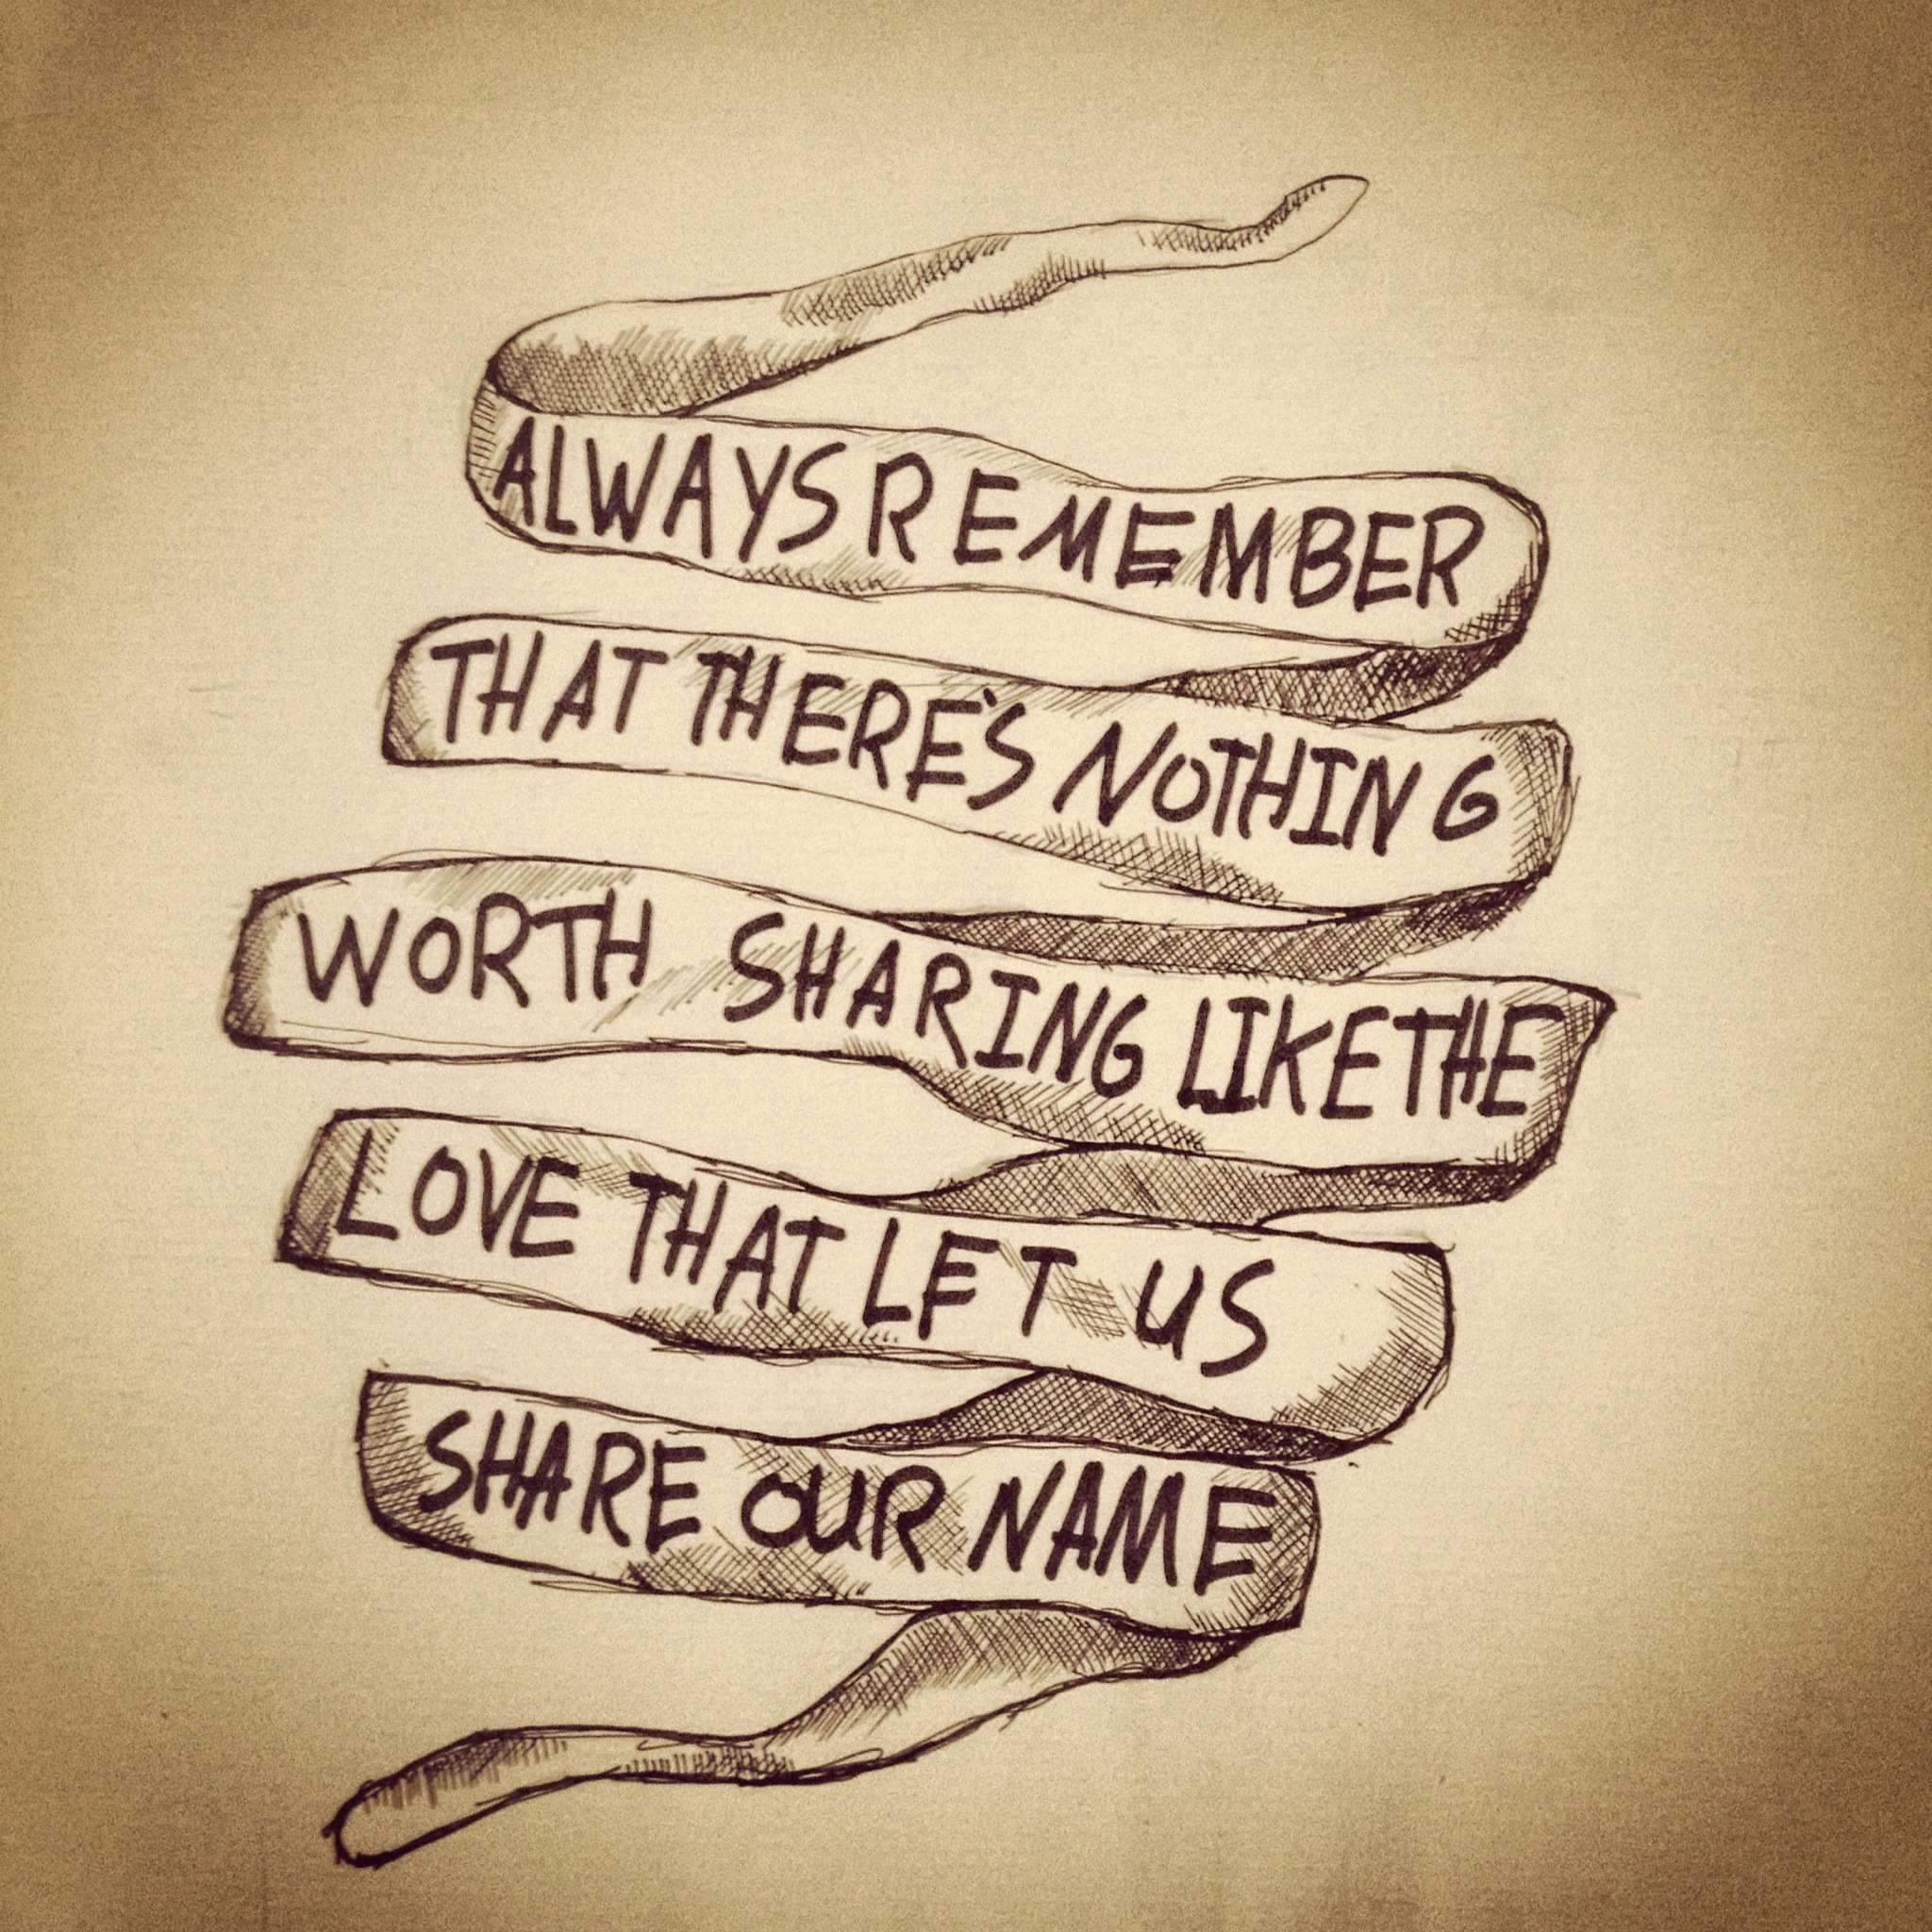 ALWAYS REMEMBER
THAT THERE'S NOTHING
WORTH SHARING LIKE THE
LOVE THAT LET US
SHARE OUR NAME